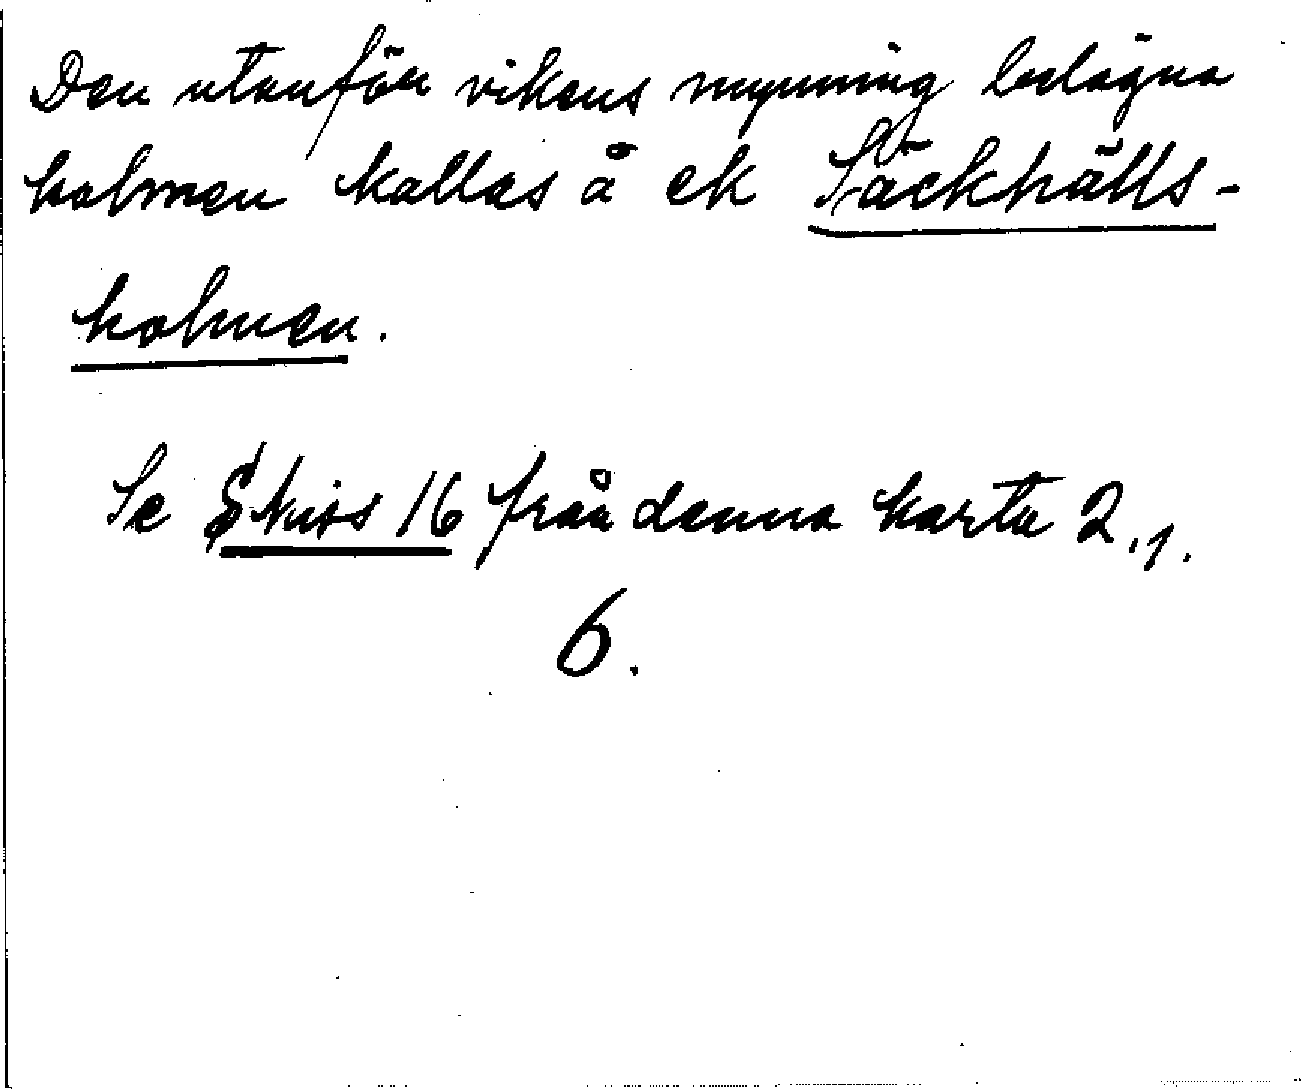 Den utanför vikens mynning belägna
holmen kallas å ek Säckhälls-
holmen.
Se Skiss 16 från denna karta 2.1.
6.